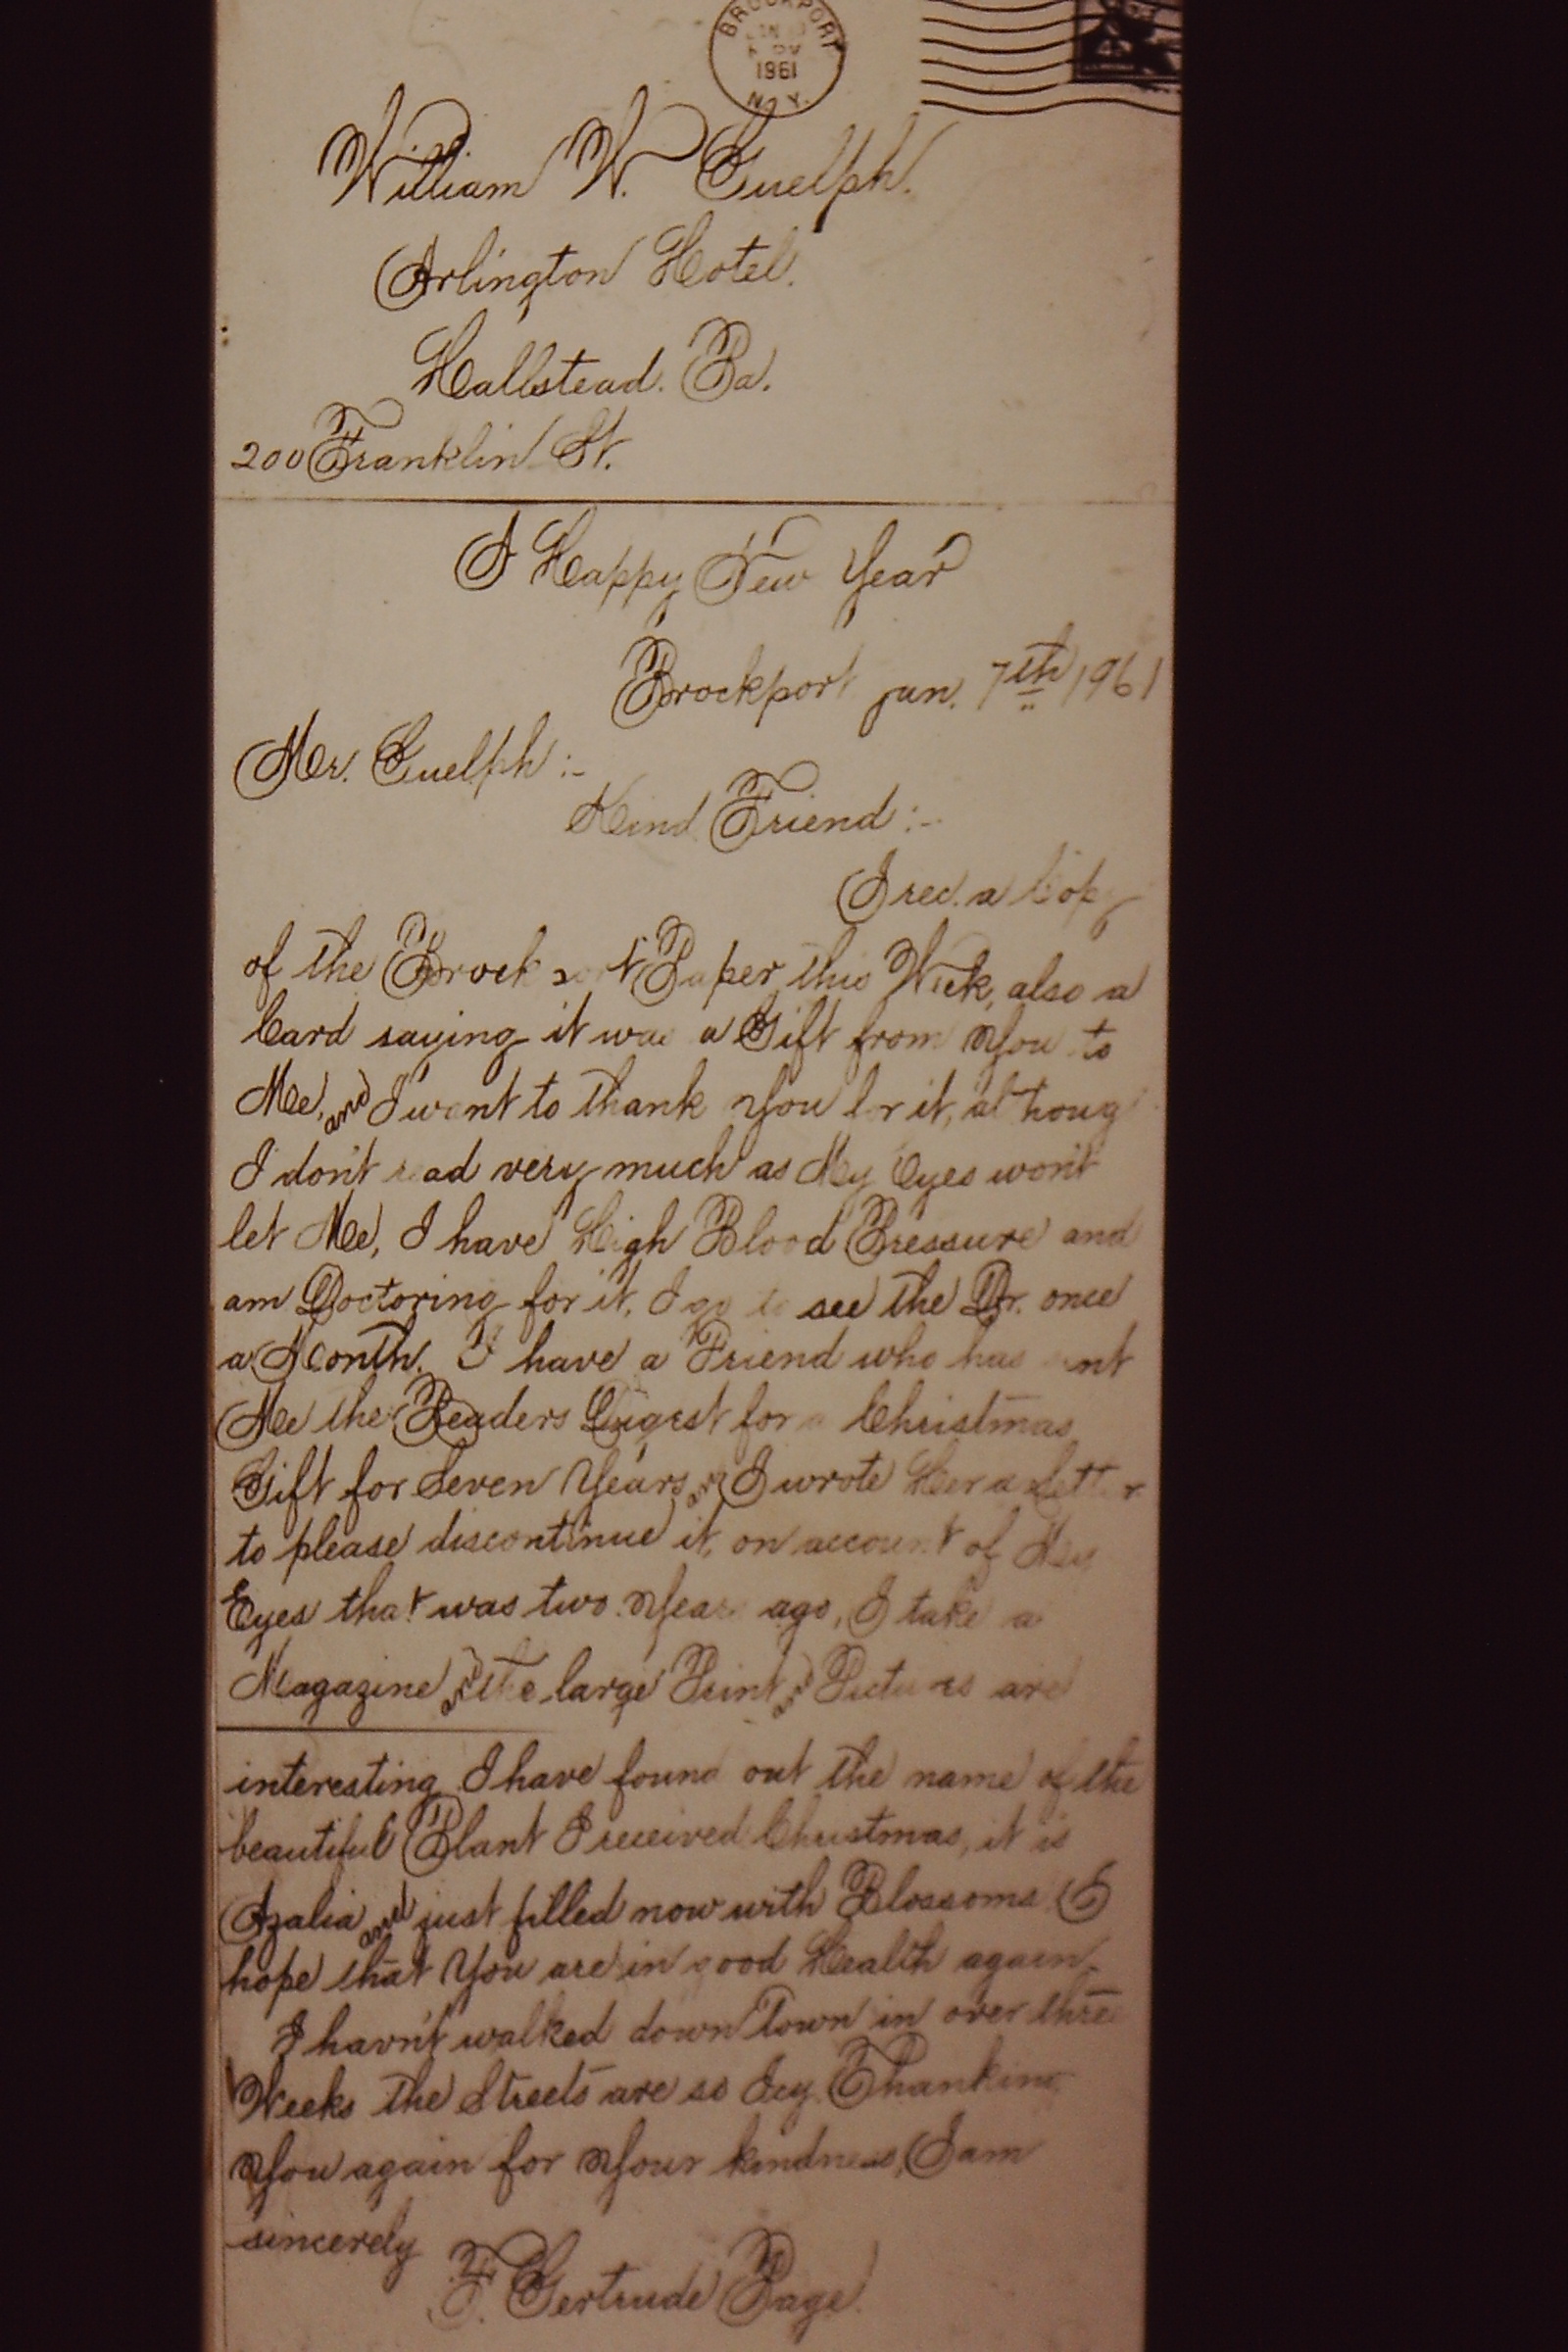 BROCKPORT
JAN
PM
1961
N.Y.
4¢
William W. Guelph.
Arlington Hotel.
Hallstead. Pa.
200 Franklin St.
A Happy New Year
Brockport jan. 7th 1961
Mr. Guelph :-
Kind Friend :-
I rec. a Copy
of the Brockport Paper this Week, also a
Card saying it was a Gift from You to
Me, and I want to thank You for it, althoug
I don't read very much as My Eyes won't
let Me, I have High Blood Pressure and
am Doctoring for it, I go to see the Dr. once
a Month. I have a Friend who has sent
Me the Readers Digest for a Christmas
Gift for Seven Years and I wrote Her a Letter
to please discontinue it, on account of My
Eyes that was two Years ago, I take a
Magazine and the large Print and Pictures are
interesting I have found out the name of the
beautiful Plant I received Christmas, it is
Azalia and just filled now with Blossoms I
hope that You are in good Health again.
I havn't walked down Town in over three
Weeks the Streets are so Icy. Thanking
You again for Your kindness, I am
sincerely
F. Gertrude Page.